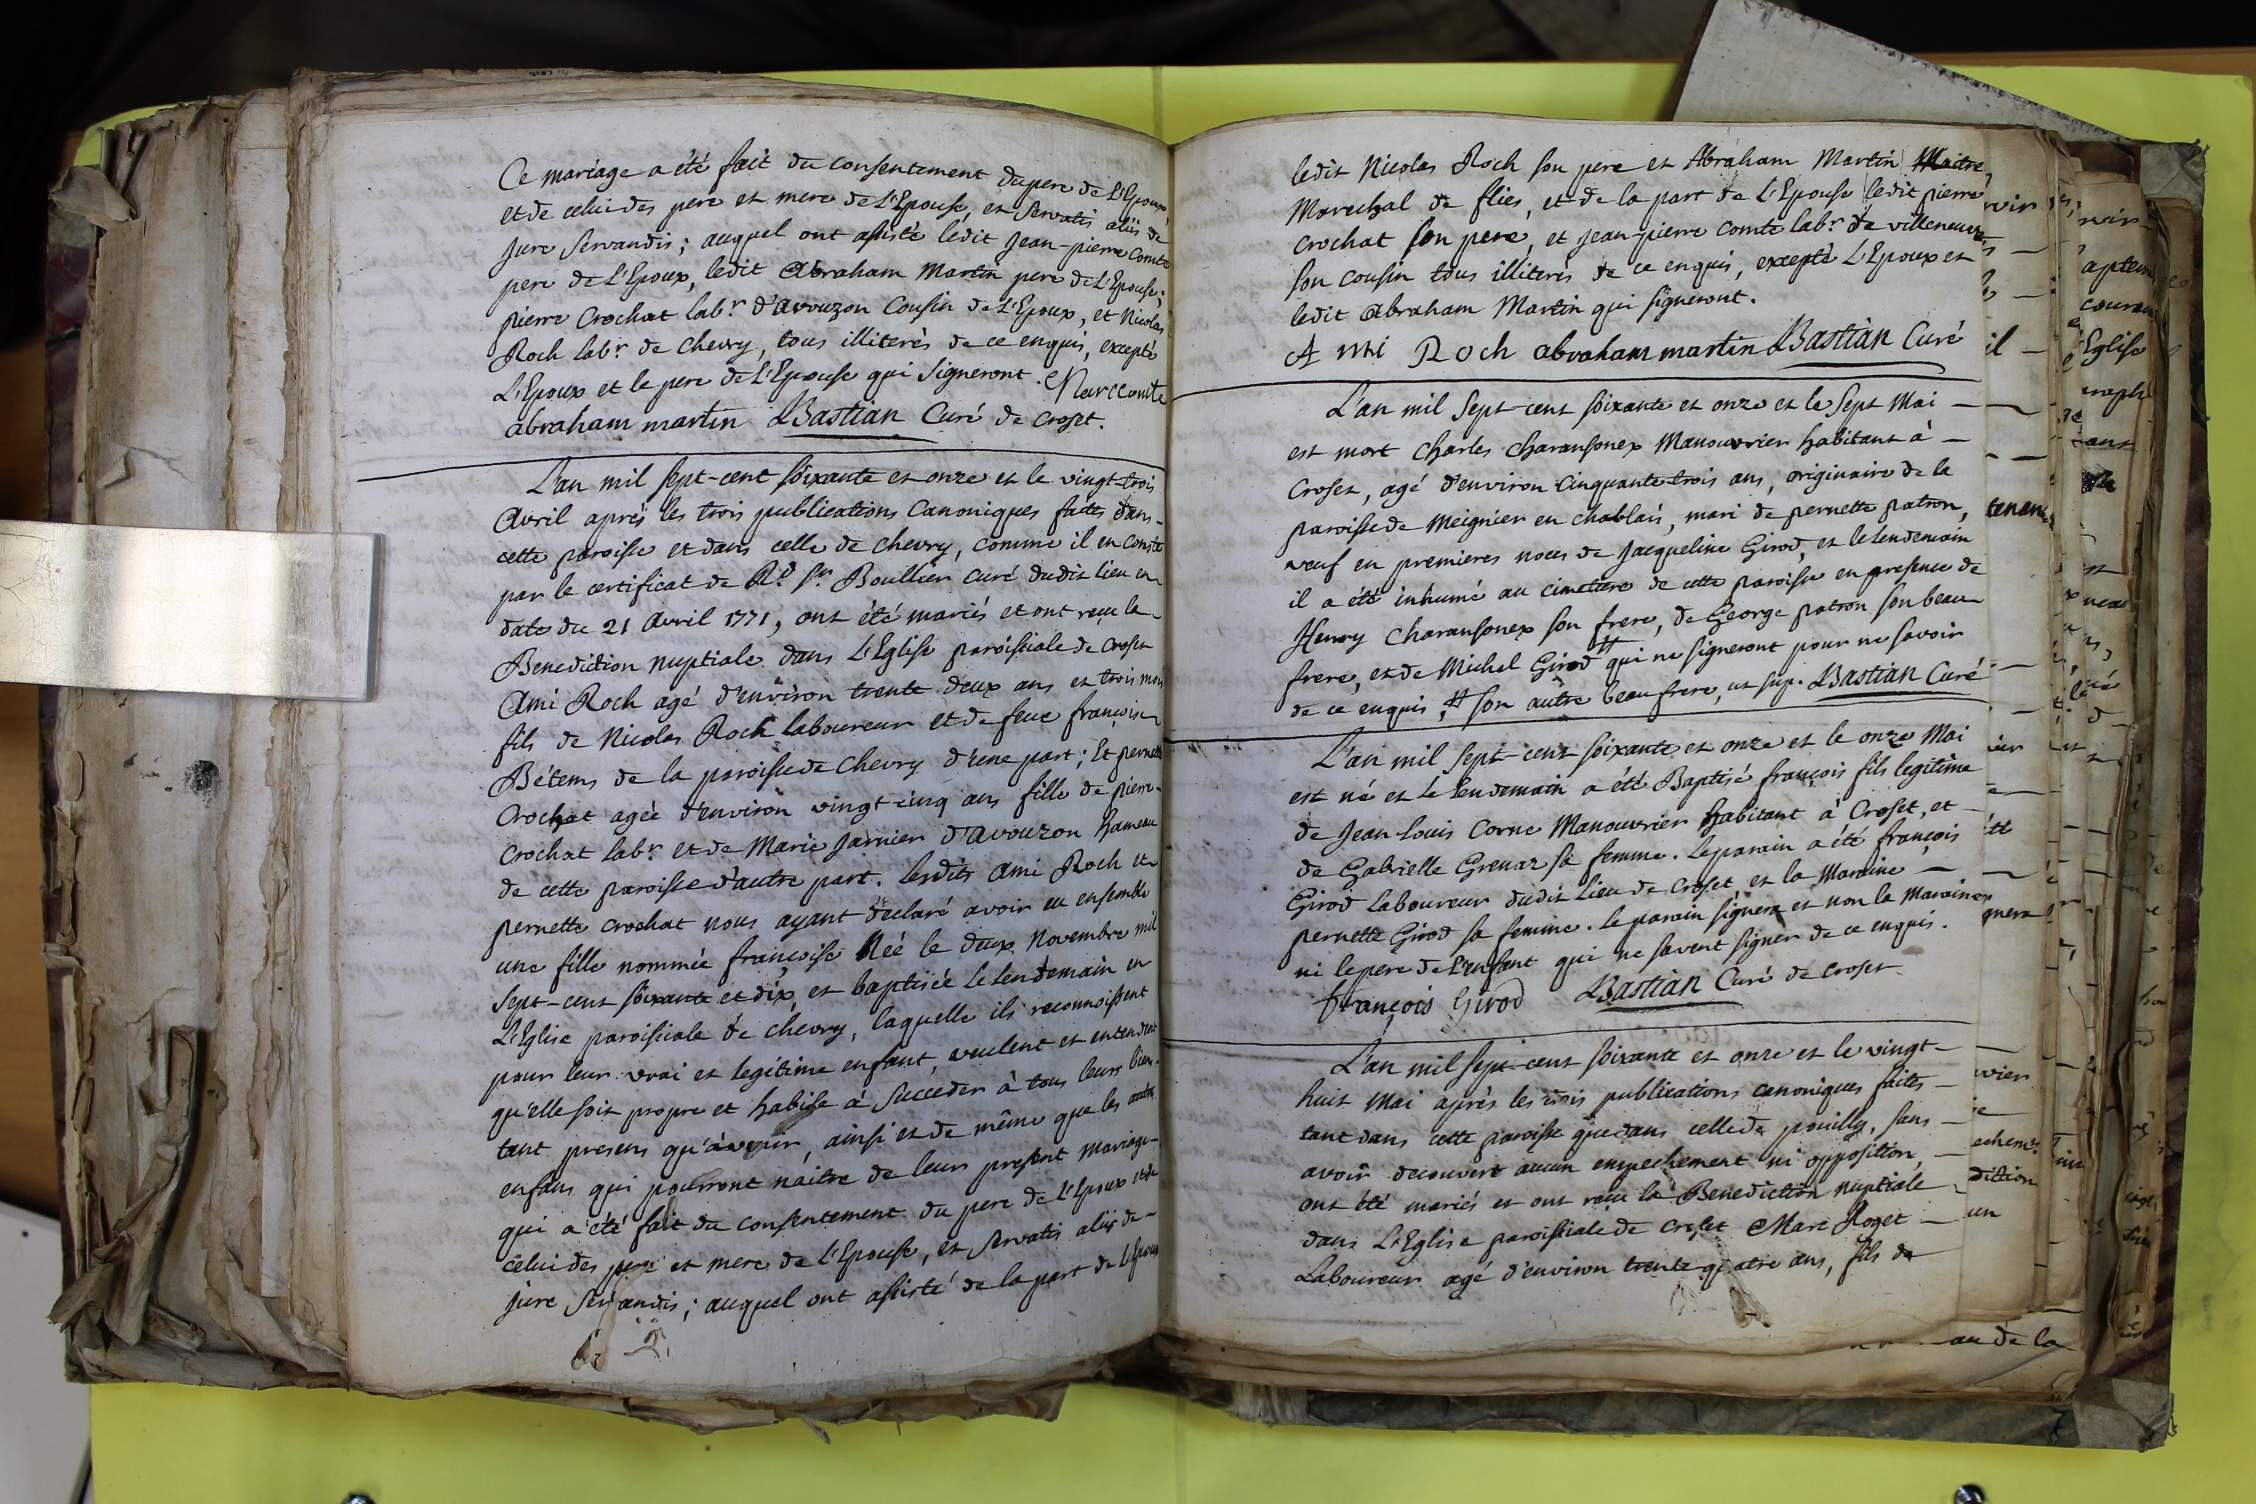 Ce mariage a été fait du consentement du pere de L'Epoux,
et de celui des pere et mere de L'Epouse, et servatis aliis de
jure servandis; auquel ont assisté ledit Jean-pierre Comte
pere de L'Epoux, ledit Abraham Martin pere de L'Epouse;
pierre Crochat labr. d'avouzon Cousin de L'Epoux, et Nicolas
Roch labr. de Chevry, tous illiterés de ce enquis, excepté
L'Epoux et le pere de L'Epouse qui signeront. Marc comte
abraham martin Bastian Curé de Croset.
L'an mil sept-cent soixante et onze et le vingt-trois
Avril après les trois publications Canoniques faites dans
cette paroisse et dans celle de Chevry, comme il en Conste
par le certificat de Rd. Sr. Boullier Curé dudit lieu en
date du 21 Avril 1771, ont été mariés et ont reçu la
Benediction nuptiale dans L'Eglise paroissiale de Croset
Ami Roch agé d'environ trente deux ans et trois mois
fils de Nicolas Roch laboureur et de feue françoise
Bétems de la paroisse de Chevry d'une part; Et pernette
Crochat agée d'environ vingt cinq ans fille de pierre
Crochat labr. et de Marie Jarnier d'Avouzon hameau
de cette paroisse d'autre part. lesdits Ami Roch et
pernette Crochat nous ayant déclaré avoir eu ensemble
une fille nommée françoise Née le deux Novembre mil
sept-cent soixante et dix, et baptisée le lendemain en
L'Eglise paroissiale de Chevry, laquelle ils reconnoissent
pour leur vrai et legitime enfant, veulent et entendent
qu'elle soit propre et habile à succeder à tous leurs biens
tant presens qu'à venir, ainsi et de même que les autres
enfans qui pourront naitre de leur present Mariage
qui a été fait du consentement du pere de L'Epoux et de
celui des pere et mere de L'Epouse, et servatis aliis de
jure servandis; auquel ont assisté de la part de L'Epoux
ledit Nicolas Roch son pere et Abraham Martin Maitre
Marechal de flies, et de la part de L'Epouse ledit pierre
Crochat son pere, et Jean-pierre Comte labr. de villeneuve
son cousin tous illiterés de ce enquis, excepté L'Epoux et
ledit Abraham Martin qui signeront.
Ami Roch abraham martin Bastian Curé
L'an mil sept-cent soixante et onze et le sept Mai
est mort Charles Charansonex Manouvrier habitant à
Croset, agé d'environ Cinquante-trois ans, originaire de la
paroisse de Meignier en chablais, mari de pernette patron,
veuf en premieres noces de Jacqueline Girod, et le lendemain
il a été inhumé au cimetiere de cette paroisse en presence de
Henry Charansonex son frere, de George patron son beau
frere, et de Michel Girod # qui ne signeront pour ne savoir
de ce enquis, # son autre beau frere, ut sup. Bastian Curé
L'an mil sept-cent soixante et onze et le onze Mai
est né et le lendemain a été Baptisé françois fils legitime
de Jean-Louis Corne Manouvrier habitant à Croset, et
de Gabrielle Grenar sa femme. Le parain a été françois
Girod Laboureur dudit Lieu de Croset, et la Maraine
pernette Girod sa femme. le parain signera et non la Maraine
ni le pere de L'enfant qui ne savent signer de ce enquis.
françois Girod Bastian Curé de Croset
L'an mil sept-cent soixante et onze et le vingt-
huit Mai après les trois publications canoniques faites
tant dans cette paroisse que dans celle de pouilly, sans
avoir decouvert aucun empechement ni opposition,
ont été mariés et ont reçu la Benediction nuptiale
dans L'Eglise paroissiale de Croset Marc Roget
Laboureur agé d'environ trente quatre ans, fils de
au de la